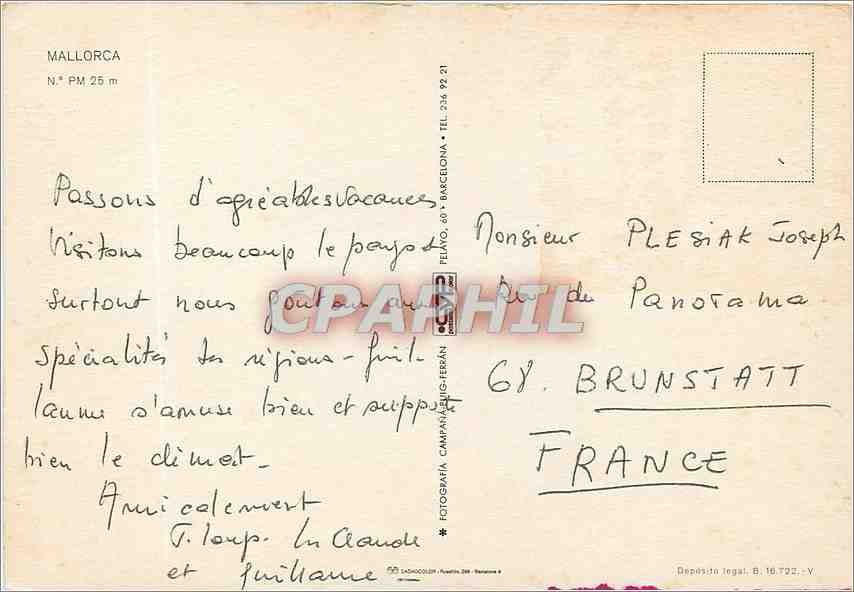 MALLORCA
N.° PM 25 m
Passons d'agréables vacances
Visitons beaucoup le pays et
surtout nous goutons aux
spécialités des régions - Guil-
laume s'amuse bien et supporte
bien le climat -
Amicalement
J. Loup. M Claude
et Guillaume -
✱ FOTOGRAFÍA CAMPAÑÁ-PUIG-FERRÁN
PELAYO, 60 • BARCELONA • TEL. 236 92 21
CPARHIL
Monsieur PLESIAK Joseph
Rue du Panorama
68. BRUNSTATT
FRANCE
Depósito legal. B. 16.722.-V